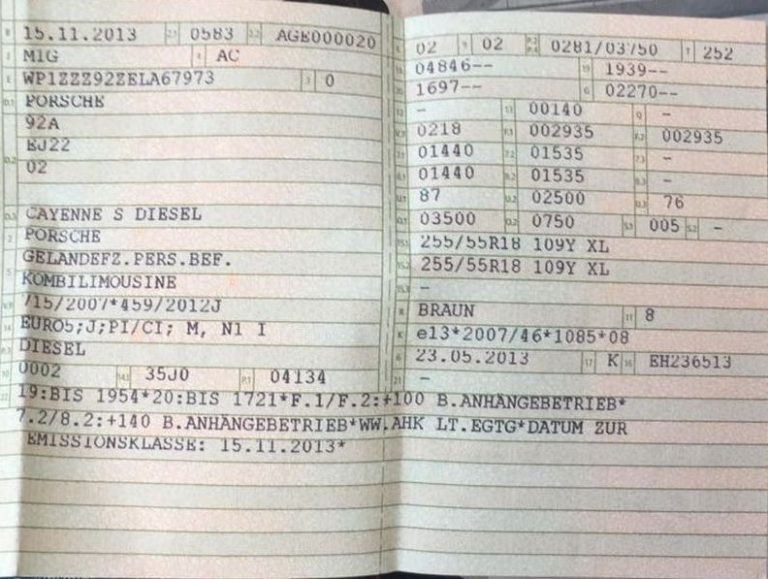 15.11.2013 0583 AGE000020
M1G AC
WP1ZZZ92ZELA67973 0
PORSCHE
92A
EJ22
02
CAYENNE S DIESEL
PORSCHE
GELANDEFZ.PERS.BEF.
KOMBILIMOUSINE
715/2007*459/2012J
EURO5;J;PI/CI; M, N1 I
DIESEL
0002 35J0 04134
02 02 0281/03750 252
04846-- 1939--
1697-- 02270--
- 00140 -
0218 002935 002935
01440 01535 -
01440 01535 -
87 02500 76
03500 0750 005 -
255/55R18 109Y XL
255/55R18 109Y XL
-
BRAUN 8
e13*2007/46*1085*08
23.05.2013 K EH236513
-
19:BIS 1954*20:BIS 1721*F.1/F.2:+100 B.ANHÄNGEBETRIEB*
7.2/8.2:+140 B.ANHÄNGEBETRIEB*WW.AHK LT.EGTG*DATUM ZUR
EMISSIONSKLASSE: 15.11.2013*